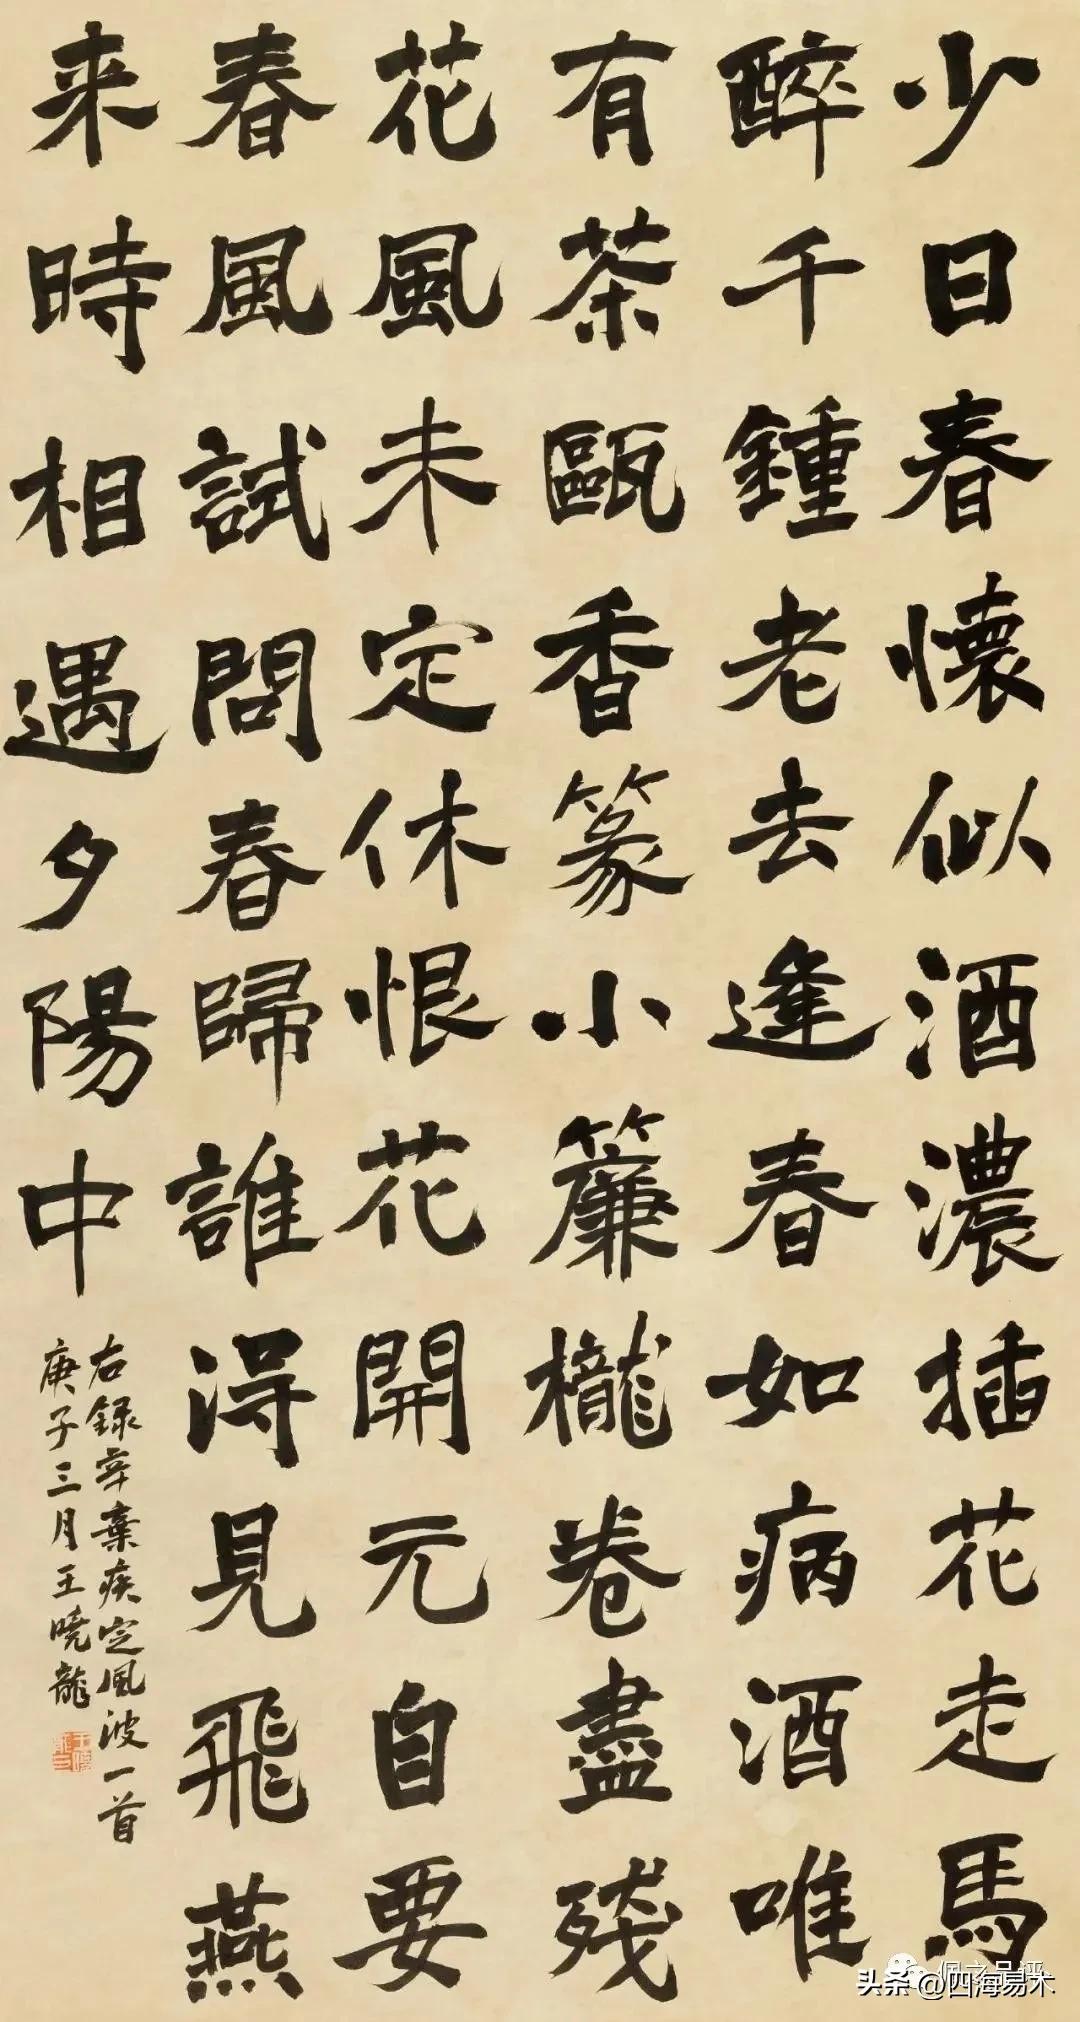 少日春懷似酒濃插花走馬
醉千鍾老去逢春如病酒唯
有茶甌香篆小簾櫳卷盡殘
花風未定休恨花開元自要
春風試問春歸誰得見飛燕
来時相遇夕陽中
右録辛棄疾定風波一首
庚子三月王曉龍
头条 @四海易木